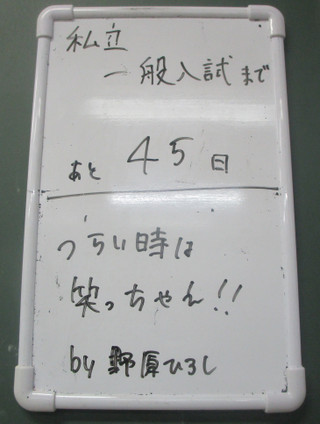 私立
一般入試まで
あと 45日
つらい時は
笑っちゃえ!!
by 野原ひろし